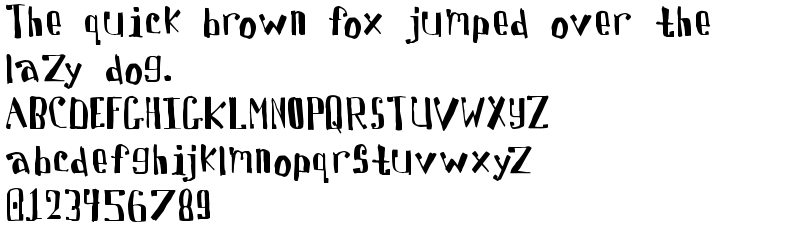 The quick brown fox jumped over the
lazy dog.
ABCDEFGHIGKLMNOPQRSTUVWXYZ
abcdefghijklmnopqrstuvwxyZ
0123456789